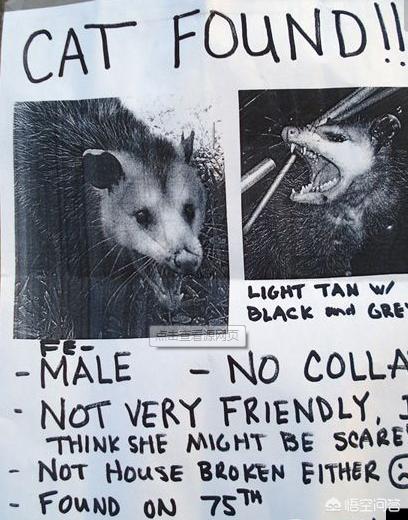 CAT FOUND!!
LIGHT TAN W/
BLACK and GREY
点击查看源网页
FE-
- MALE - NO COLLA
- NOT VERY FRIENDLY, I
THINK SHE MIGHT BE SCARE
- NOT HOUSE BROKEN EITHER
- FOUND ON 75TH
悟空问答